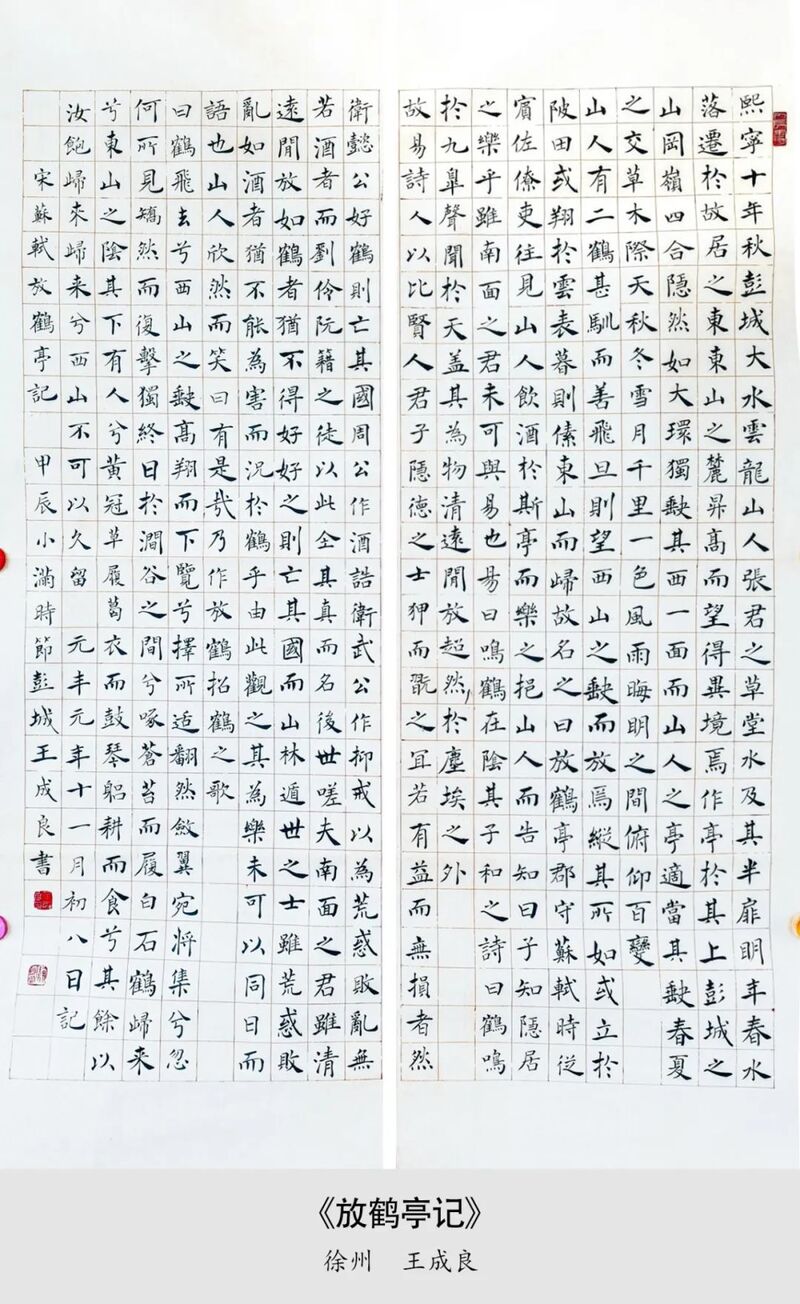 熙寧十年秋彭城大水雲龍山人張君之草堂水及其半扉明年春水
落遷於故居之東東山之麓昇髙而望得異境焉作亭於其上彭城之
山岡嶺四合隱然如大環獨缺其西一面而山人之亭適當其缺春夏
之交草木際天秋冬雪月千里一色風雨晦明之間俯仰百變
山人有二鶴甚馴而善飛旦則望西山之缺而放焉縱其所如或立於
陂田或翔於雲表暮則傃東山而歸故名之曰放鶴亭郡守蘇軾時從
賓佐僚吏往見山人飲酒於斯亭而樂之挹山人而告知曰子知隱居
之樂乎雖南面之君未可與易也易曰鳴鶴在陰其子和之詩曰鶴鳴
於九皐聲聞於天盖其為物清遠閒放超然於塵埃之外
故易詩人以比賢人君子隱德之士狎而翫之冝若有益而無損者然
衛懿公好鶴則亡其國周公作酒誥衛武公作抑戒以為荒惑敗亂無
若酒者而劉伶阮籍之徒以此全其真而名後世嗟夫南面之君雖清
遠閒放如鶴者猶不得好好之則亡其國而山林遁世之士雖荒惑敗
亂如酒者猶不能為害而況於鶴乎由此觀之其為樂未可以同日而
語也山人欣然而笑曰有是哉乃作放鶴招鶴之歌
曰鶴飛去兮西山之缺髙翔而下覽兮擇所适翻然斂翼宛將集兮忽
何所見矯然而復擊獨終日於澗谷之間兮啄蒼苔而履白石鶴歸来
兮東山之陰其下有人兮黃冠草履葛衣而鼓琴躬耕而食兮其餘以
汝飽歸来歸来兮西山不可以久留 元丰元年十一月初八日記
宋蘇軾放鶴亭記 甲辰小滿時節彭城王成良書
《放鹤亭记》
徐州 王成良